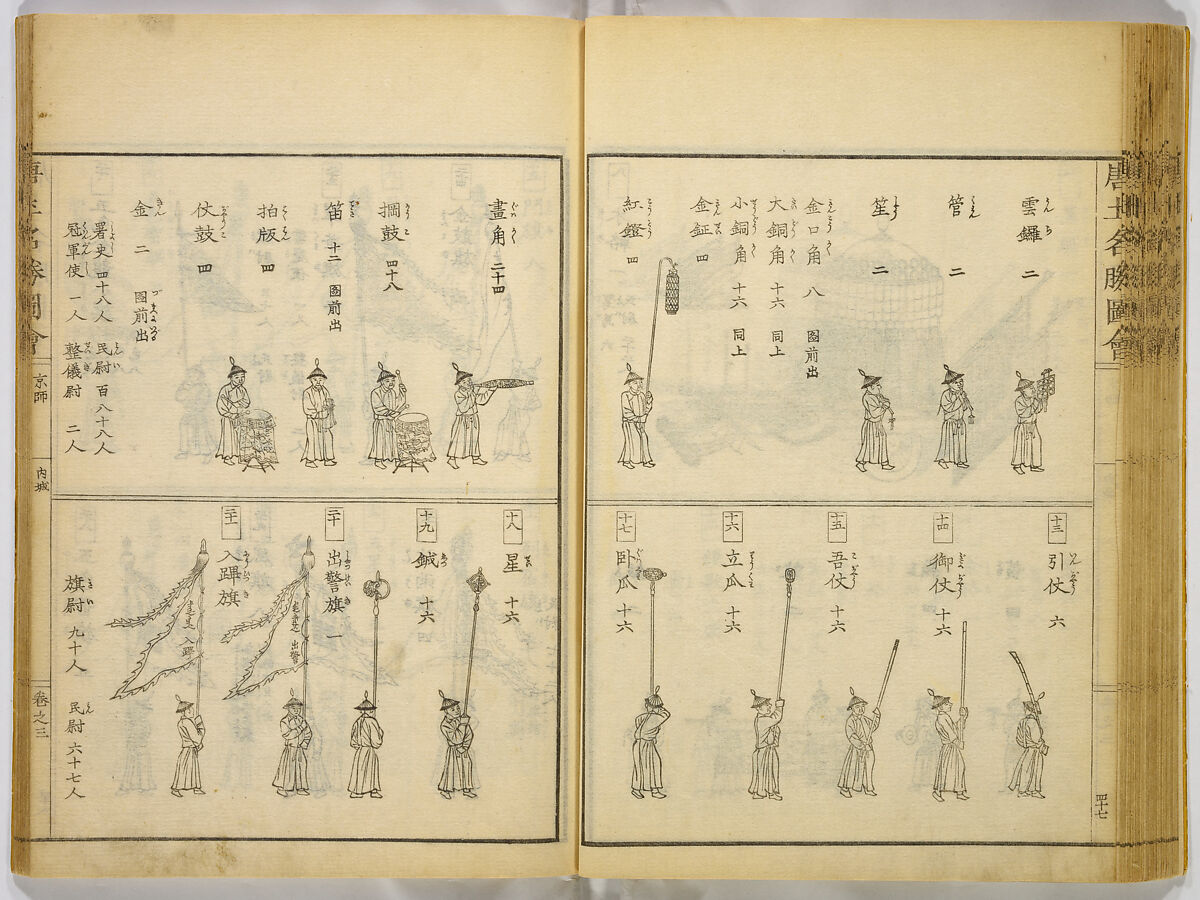 唐土名勝圖會
雲鑼 二
管 二
笙 二
金口角 八 圖前出
大銅角 十六 同上
小銅角 十六 同上
金鉦 四
紅鐙 四
十三 引仗 六
十四 御仗 十六
十五 吾仗 十六
十六 立瓜 十六
十七 臥瓜 十六
四十七
畫角 二十四
掆鼓 四十八
笛 十二 圖前出
拍版 四
仗鼓 四
金 二 圖前出
署史 四十八人 民尉 百八十八人
冠軍使 一人 整儀尉 二人
十八 星 十六
十九 鉞 十六
二十 出警旗 一
出警
二十一 入蹕旗
入蹕
旗尉 九十人 民尉 六十七人
唐土名勝圖會
京師
内城
卷之三